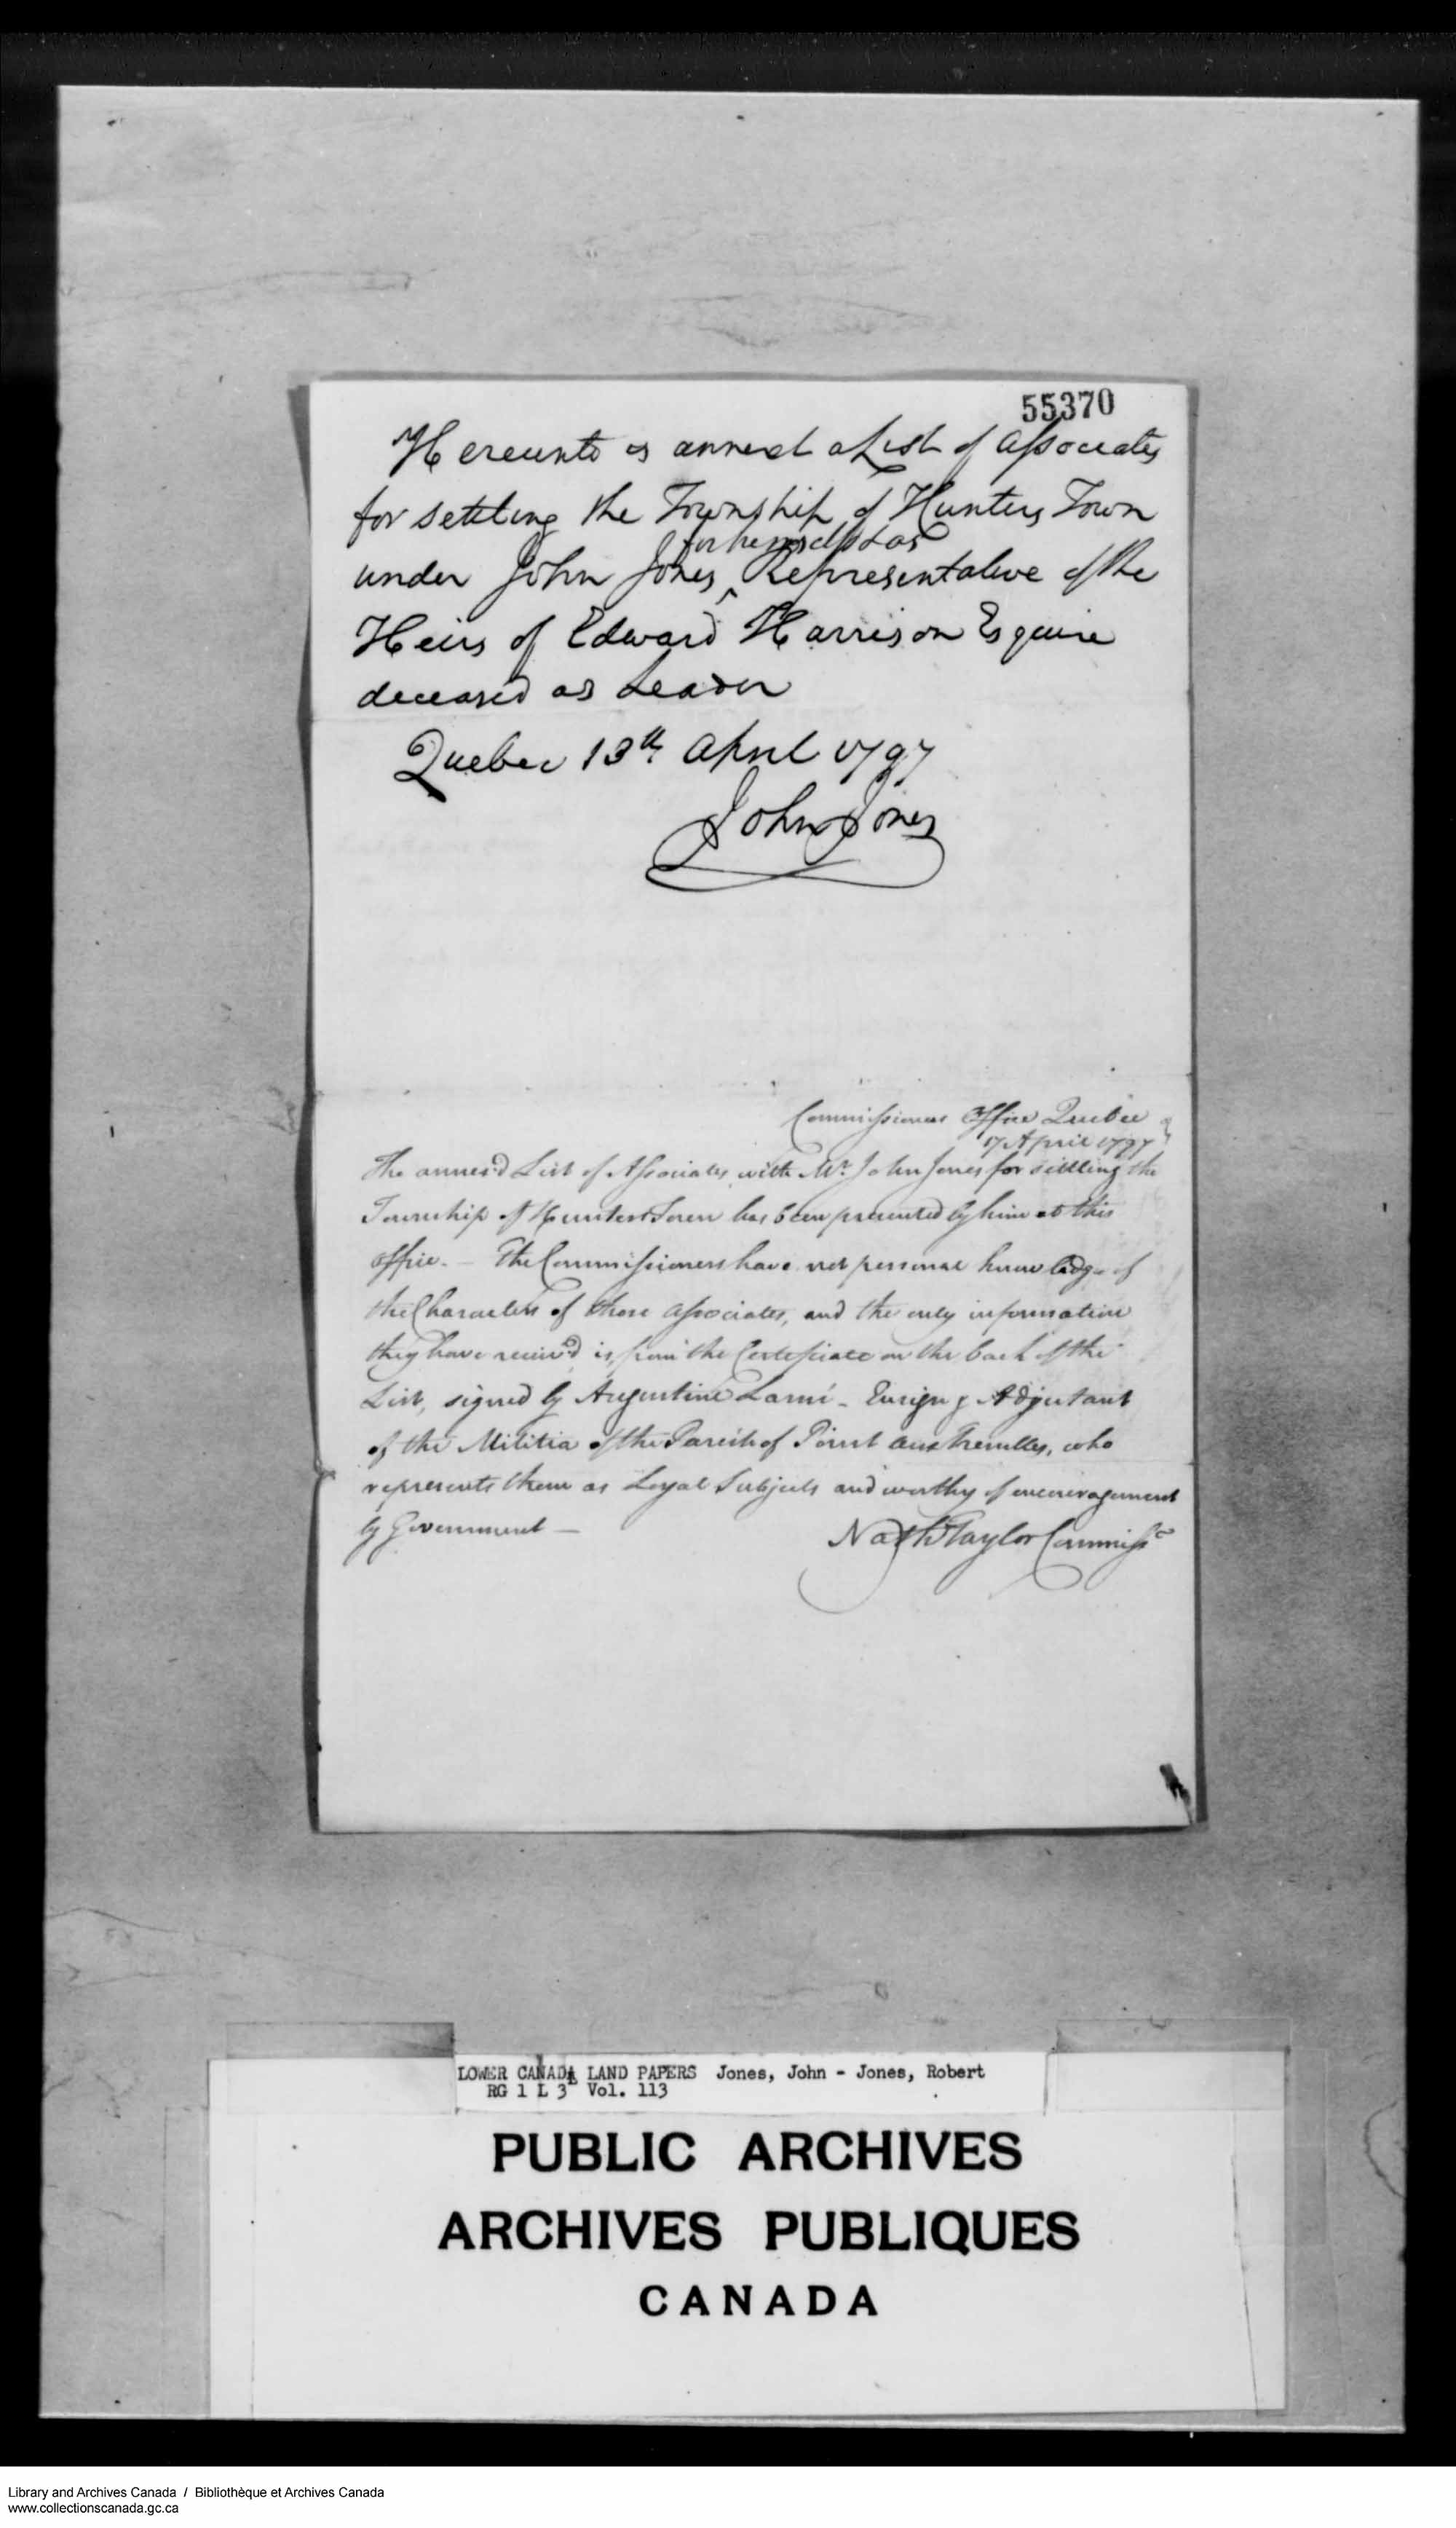 55370
Hereunto is annext a List of Associates
for settling the Township of Hunters Town
for himself & as
under John Jones ^ Representative of the
Heirs of Edward Harrison Esquire
deceased as Leader
Quebec 13th April 1797
John Jones
Commissioners Office Quebec
17 April 1797
The annex'd List of Associates with Mr. John Jones for settling the
Township of Hunters Town has been presented by him at this
office. - The Commissioners have not personal knowledge of
the Characters of those Associates, and the only information
they have receiv'd is from the Certificate on the back of the
List, signed by Augustine Lami - Ensign & Adjutant
of the Militia of the Parish of Point aux Trembles, who
represents them as Loyal Subjects and worthy of encouragement
by Government -
Nath Taylor Commissr
LOWER CANADA LAND PAPERS Jones, John - Jones, Robert
RG 1 L 3 Vol. 113
PUBLIC ARCHIVES
ARCHIVES PUBLIQUES
CANADA
Library and Archives Canada / Bibliothèque et Archives Canada
www.collectionscanada.gc.ca